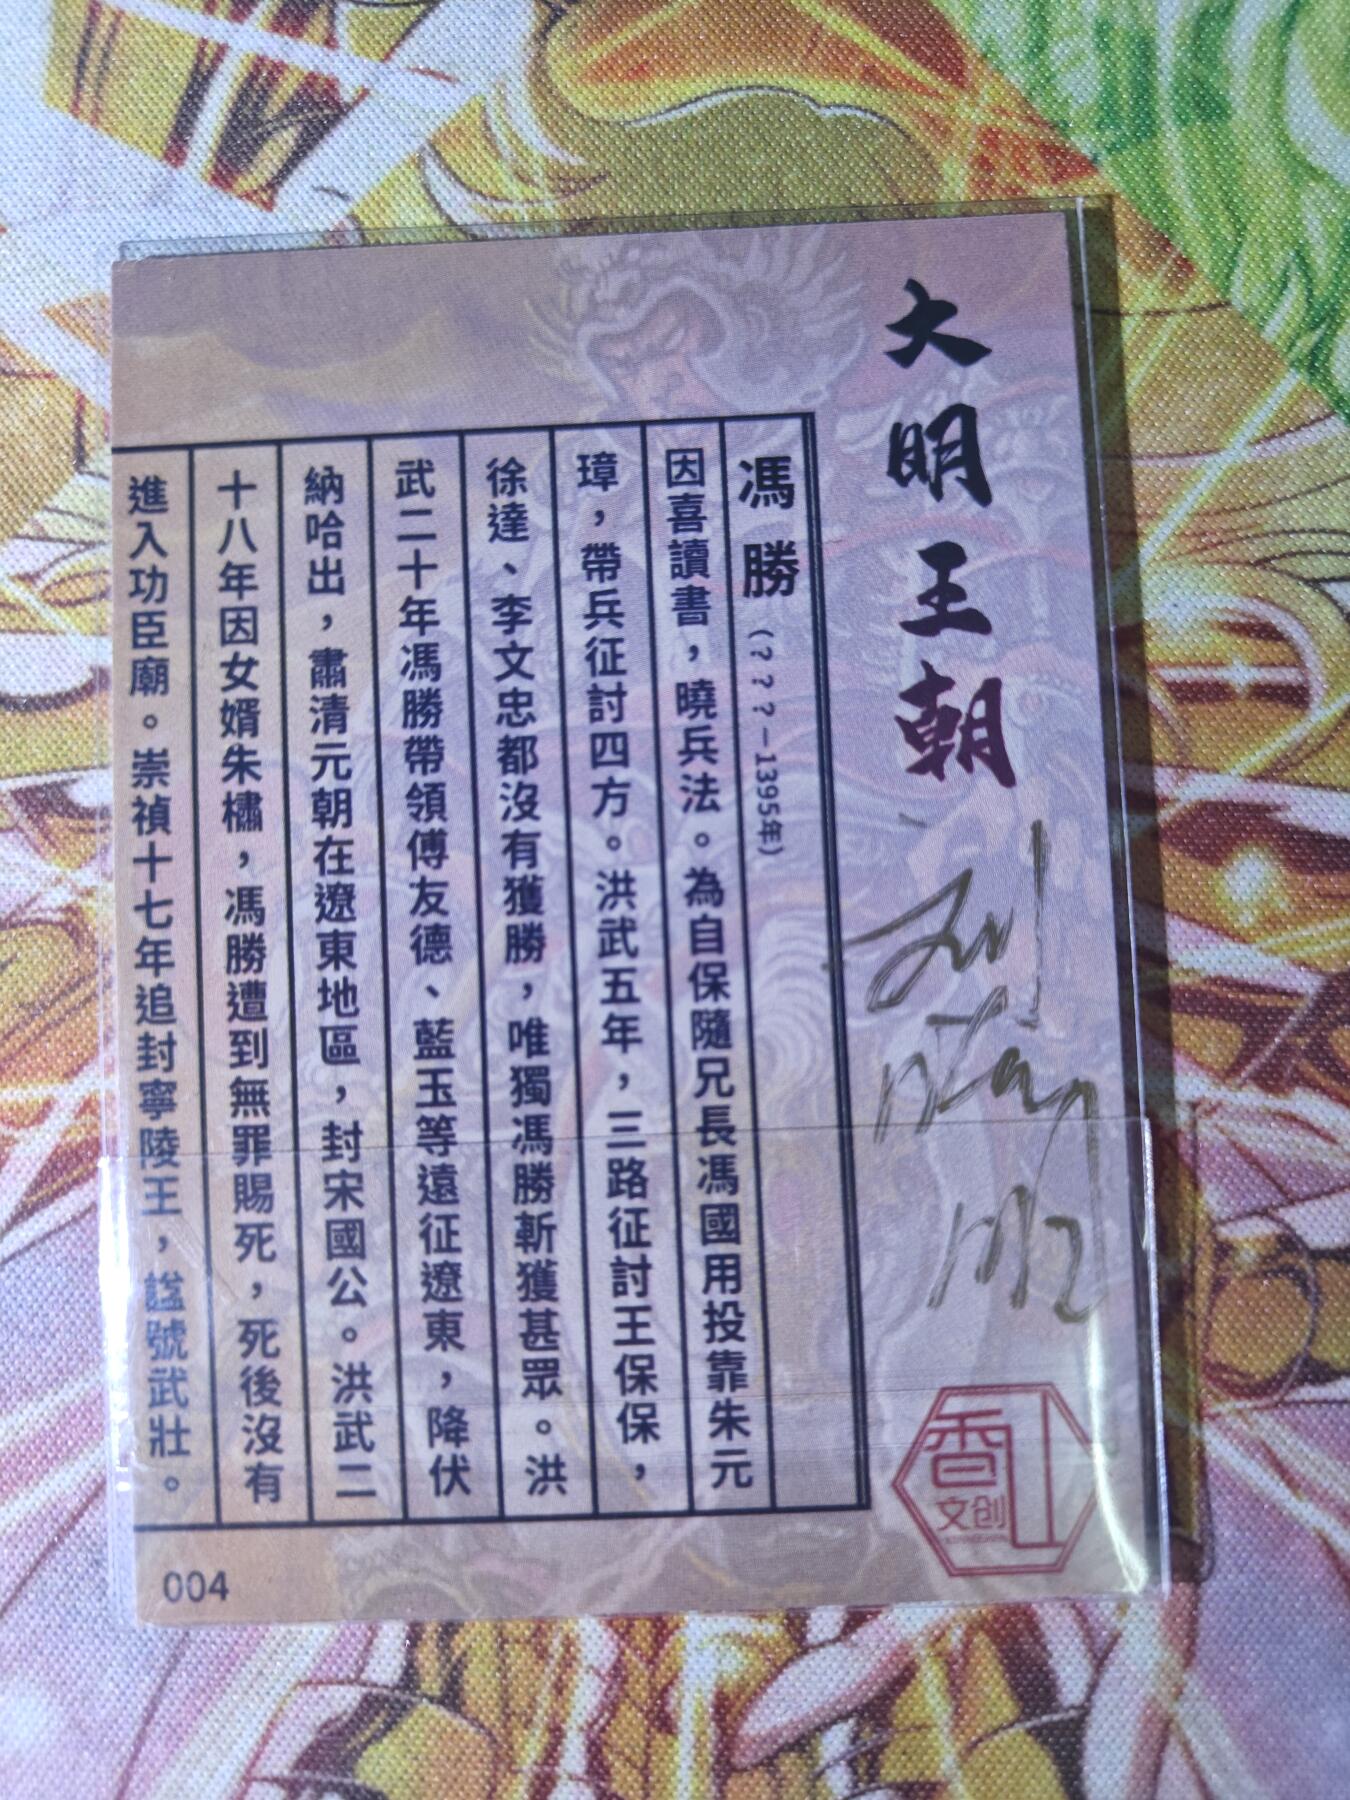 大明王朝
馮勝（？？？－1395年）
因喜讀書，曉兵法。為自保隨兄長馮國用投靠朱元
璋，帶兵征討四方。洪武五年，三路征討王保保，
徐達、李文忠都沒有獲勝，唯獨馮勝斬獲甚眾。洪
武二十年馮勝帶領傅友德、藍玉等遠征遼東，降伏
納哈出，肅清元朝在遼東地區，封宋國公。洪武二
十八年因女婿朱橚，馮勝遭到無罪賜死，死後沒有
進入功臣廟。崇禎十七年追封寧陵王，諡號武壯。
香山
文创
004